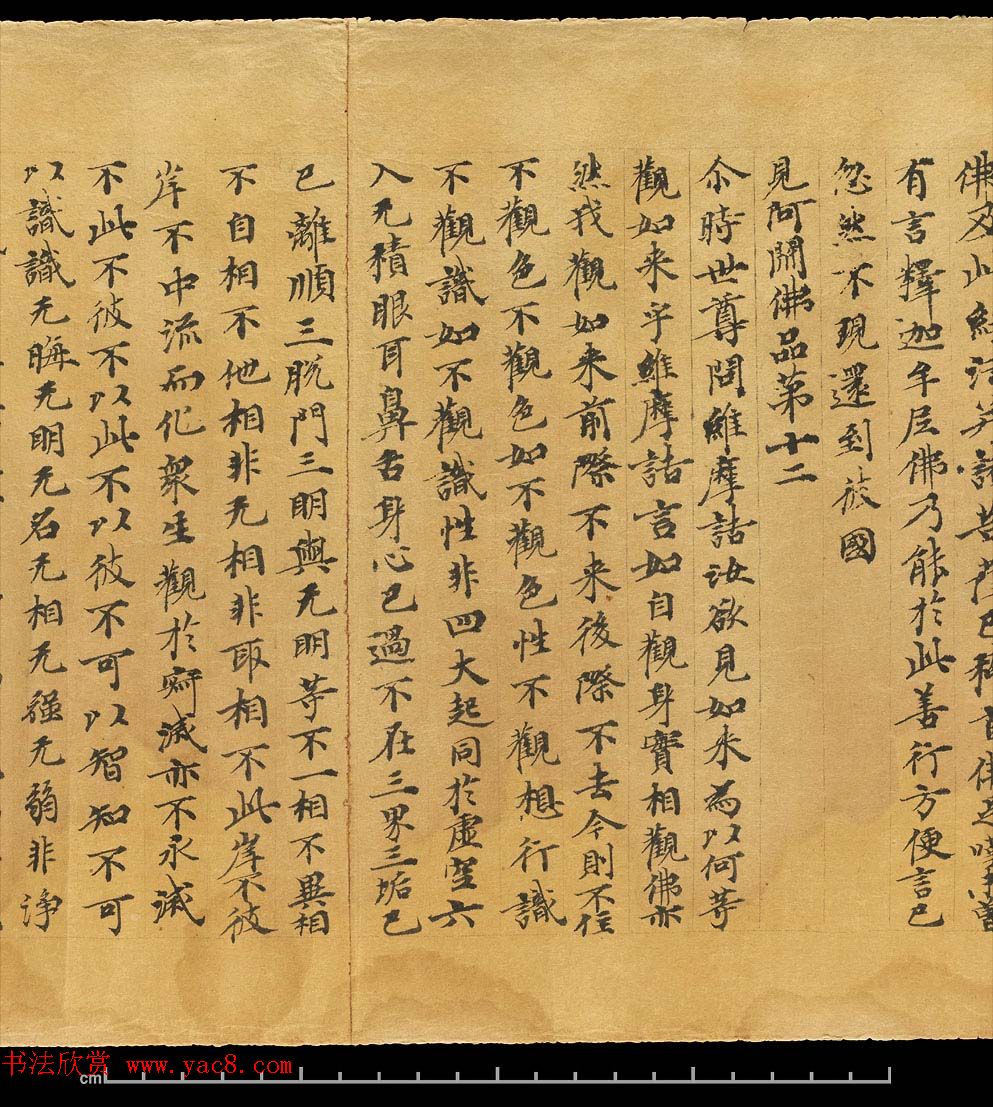 佛及此經法并諸菩薩已稱言佛是㗖當
有言釋迦牟尼佛乃能於此善行方便言已
忽然不現還到彼國
見阿閦佛品第十二
尒時世尊問維摩詰汝欲見如来為以何等
觀如来乎維摩詰言如自觀身實相觀佛亦
然我觀如来前際不来後際不去今則不住
不觀色不觀色如不觀色性不觀想行識
不觀識如不觀識性非四大起同於虛空六
入无積眼耳鼻舌身心已過不在三界三垢已
已離順三脱門三明與无明等不一相不異相
不自相不他相非无相非取相不此岸不彼
岸不中流而化衆生觀於寂滅亦不永滅
不此不彼不以此不以彼不可以智知不可
以識識无晦无明无名无相无強无弱非淨
书法欣赏 www.yac8.com
cm